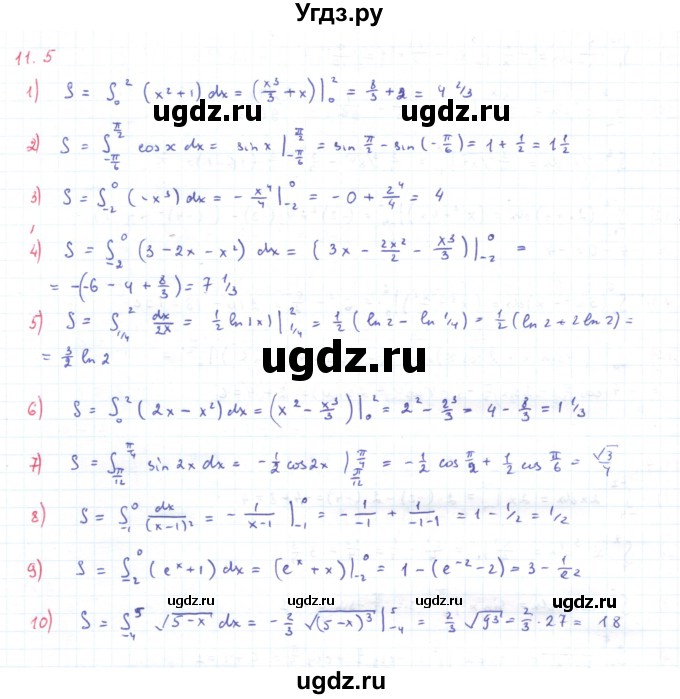 Угдз.ру
11.5
1) S = ∫₀² (x²+1) dx = (x³/3 + x)|₀² = 8/3 + 2 = 4 2/3
ugdz.ru ugdz.ru
2) S = ∫_{-π/6}^{π/2} cos x dx = sin x |_{-π/6}^{π/2} = sin π/2 - sin (-π/6) = 1 + 1/2 = 1 1/2
3) S = ∫_{-2}^0 (-x³) dx = - x⁴/4 |_{-2}^0 = - 0 + 2⁴/4 = 4
4) S = ∫_{-2}^0 (3 - 2x - x²) dx = (3x - 2x²/2 - x³/3)|_{-2}^0 =
= -(-6 - 4 + 8/3) = 7 1/3
5) S = ∫_{1/4}^2 dx/2x = 1/2 ln|x| |_{1/4}^2 = 1/2 (ln 2 - ln 1/4) = 1/2 (ln 2 + 2 ln 2) =
= 3/2 ln 2
ugdz.ru
6) S = ∫₀² (2x - x²) dx = (x² - x³/3)|₀² = 2² - 2³/3 = 4 - 8/3 = 1 1/3
7) S = ∫_{π/12}^{π/4} sin 2x dx = - 1/2 cos 2x |_{π/12}^{π/4} = - 1/2 cos π/2 + 1/2 cos π/6 = √3/4
ugdz.ru
8) S = ∫_{-1}^0 dx/(x-1)² = - 1/(x-1) |_{-1}^0 = - 1/-1 + 1/-1-1 = 1 - 1/2 = 1/2
9) S = ∫_{-2}^0 (eˣ+1) dx = (eˣ + x)|_{-2}^0 = 1 - (e⁻² - 2) = 3 - 1/e²
ugdz.ru ugdz.ru
10) S = ∫_{-4}^5 √(5-x) dx = - 2/3 √(5-x)³ |_{-4}^5 = 2/3 √9³ = 2/3 · 27 = 18
ugdz.ru ugdz.ru